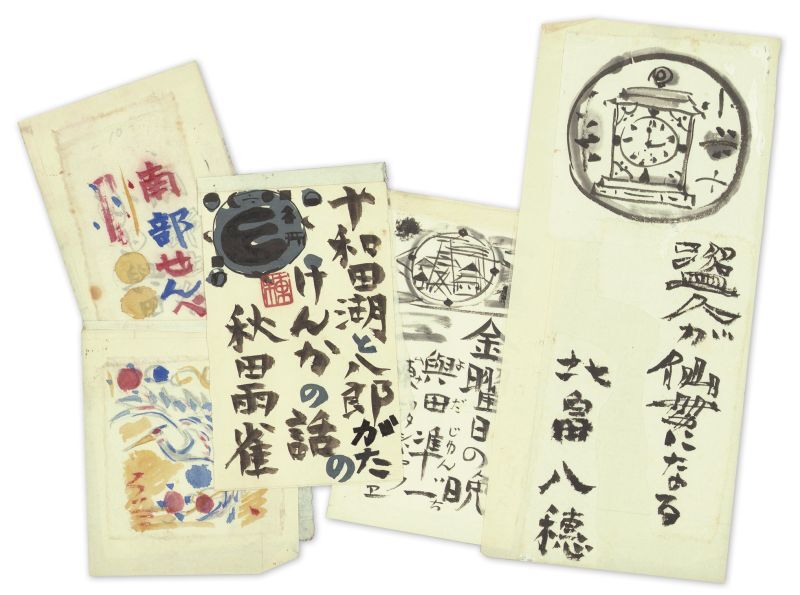 南部せんべ
十和田湖と八郎がたの
けんかの話
秋田雨雀
金曜日の晩
與田凖一
よだ じゅん
盗人が になる
北畠八穂